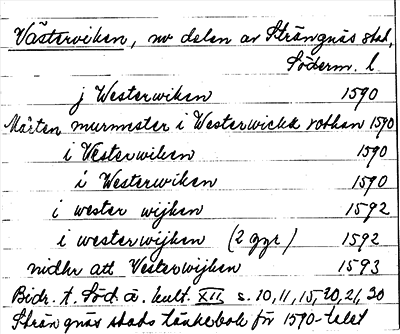 Västerviken, nv delen av Strängnäs stad,
Söderm. l.
j Westerwiken 1590
Mårten murmester i Westerwickk rothan 1590
i Westerwiken 1590
i Westerwiken 1590
i wester wijken 1592
i westerwijken (2 ggr) 1592
nidhr att Vesterwijken 1593
Bidr. t. Söd. ä. kult. XII s. 10, 11, 15, 20, 21, 30
Strängnäs stads tänkebok för 1590-talet